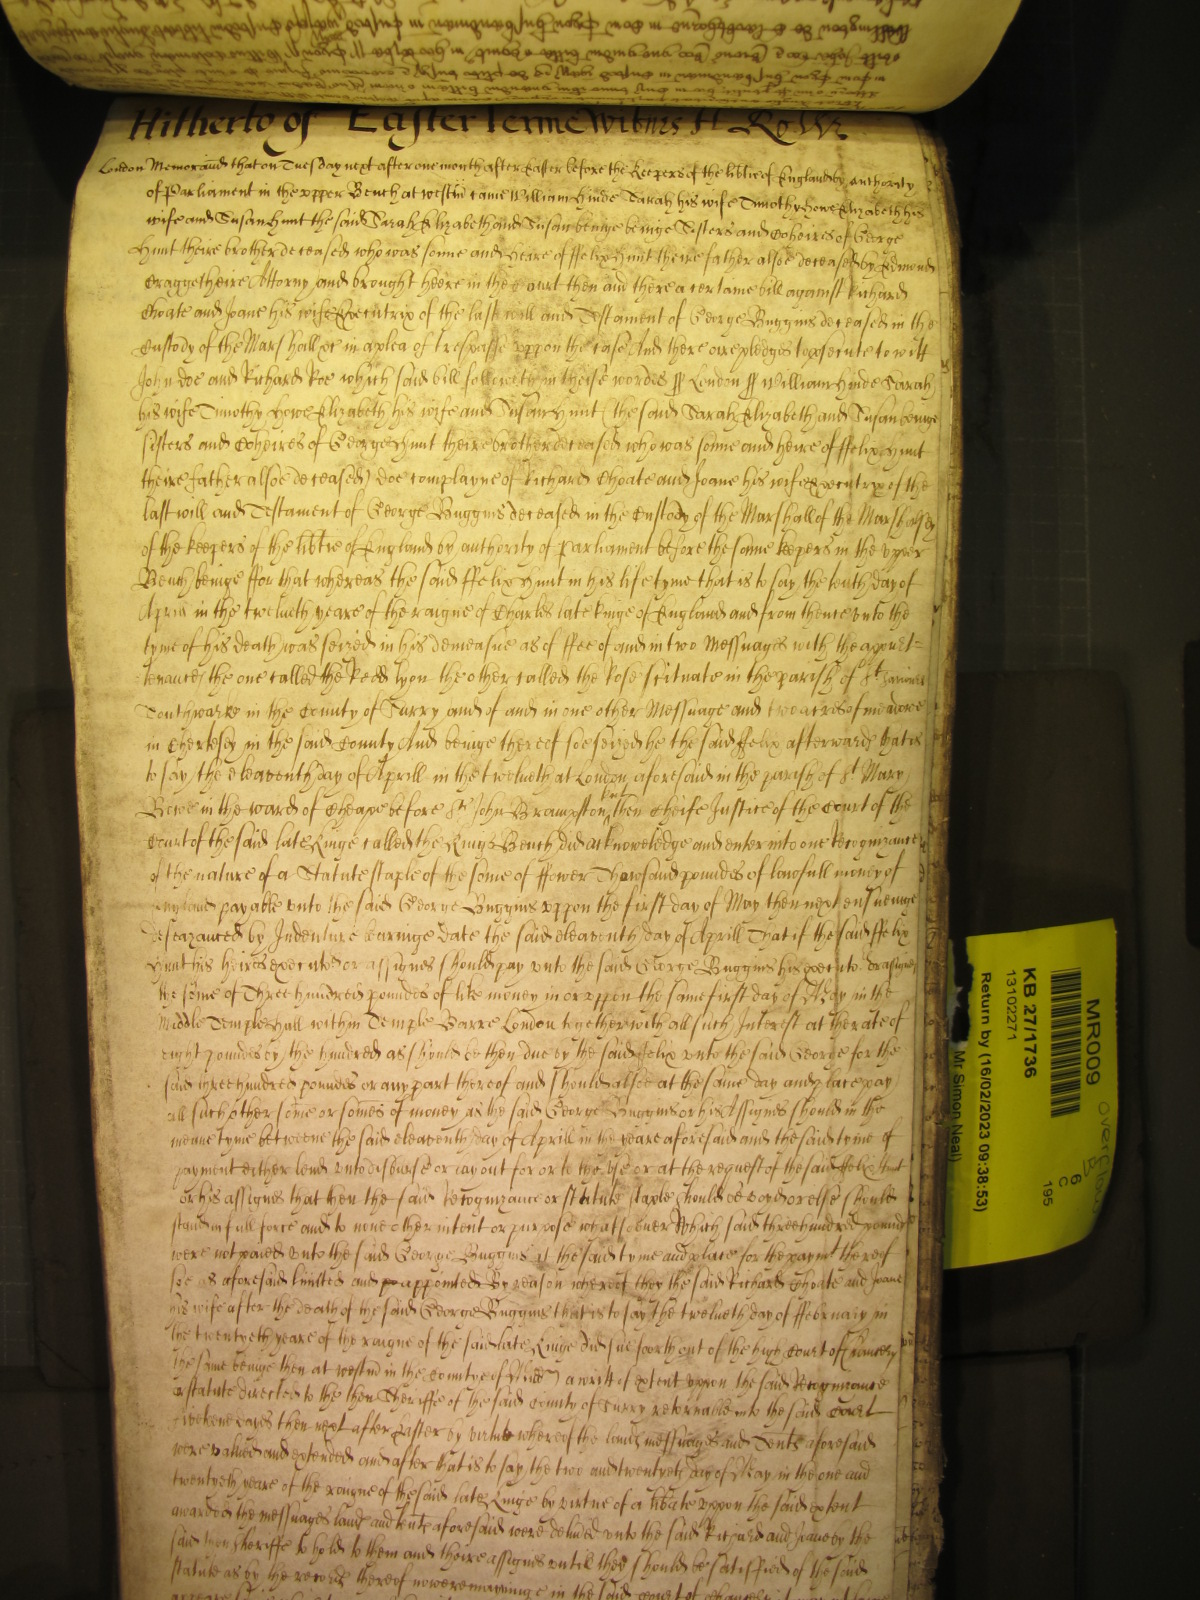 Hitherto of Easter Terme Witnes H Ro
London Memorand that on Tuesday next after one month after Easter before the Keepers of the libtie of England by authority
of Parliament in the upper Bench at westm came William Hinde Sarah his wife Timothy Howe Elizabeth his
wife and Susan Hunt the said Sarah Elizabeth and Susan beinge beinge Sisters and Coheires of George
Hunt theire brother deceased who was sonne and heire of ffelix Hunt theire father alsoe deceased by Edmond
Cragge theire Attorny and brought heere in the Court then and there a certaine bill against Richard
Choate and Joane his wife Executrix of the last will and Testament of George Buggins deceased in the
Custody of the Marshall &c in a plea of trespasse uppon the case And there are pledges to prosecute to witt
John Doe and Richard Roe which said bill followeth in theise wordes ss London ss William Hinde Sarah
his wife Timothy Howe Elizabeth his wife and Susan Hunt (the said Sarah Elizabeth and Susan beinge
sisters and Coheires of George Hunt theire brother deceased who was sonne and heire of ffelix Hunt
theire father alsoe deceased) doe complayne of Richard Choate and Joane his wife Executrix of the
last will and Testament of George Buggins deceased in the Custody of the Marshall of the Marshalsey
of the keepers of the libtie of England by authority of Parliament before the same keepers in the upper
Bench beinge ffor that whereas the said ffelix Hunt in his life tyme that is to say the tenth day of
Aprill in the twelueth yeare of the raigne of Charles late kinge of England and from thence unto the
tyme of his death was seized in his demeasne as of ffee of and in two Messuages with the appurt-
tenances the one called the Redd Lyon the other called the Rose scituate in the parish of St Saviours
Southwarke in the County of Surry and of and in one other Messuage and two acres of meadowe
in Chertesey in the said County And beinge thereof soe seized he the said ffelix afterwards that is
to say the eleaventh day of Aprill in the twelueth at London aforesaid in the parish of St Mary
Bowe in the ward of Cheape before Sr John Brampston knt then Cheife Justice of the Court of the
Court of the said late Kinge called the Kings Bench did acknowledge and enter into one Recognizance
of the nature of a Statute staple of the some of ffower Thousand poundes of lawfull money of
England payable unto the said George Buggins uppon the first day of May then next ensueinge
defeazanced by Indenture bearinge date the said eleaventh day of Aprill That if the said ffelix
Hunt his heires executors or assignes should pay unto the said George Buggins his executors or assignes
the some of Three hundred poundes of like money in or uppon the same first day of May in the
Middle Temple Hall within Temple Barre London together with all such Interest at the rate of
eight poundes by the hundred as should be then due by the said ffelix unto the said George for the
said three hundred poundes or any part thereof and should alsoe at the same day and place pay
all such other some or somes of money as the said George Buggins or his Assignes should in the
meane tyme betweene the said eleaventh day of Aprill in the yeare aforesaid and the said tyme of
payment either lend unto disburse or lay out for or to the use or at the request of the said ffelix Hunt
or his assignes that then the said Recognizance or statute staple should be void or else should
stand in full force and to none other intent or purpose whatsoever Which said three hundred pounds
were not paied unto the said George Buggins at the said tyme and place for the paymt thereof
soe as aforesaid limited and appointed By reason whereof they the said Richard Choate and Joane
his wife after the death of the said George Buggins that is to say the twelueth day of ffebruary in
the twentyeth yeare of the raigne of the said late Kinge did sue foorth out of the high Court of Chancery
the same beinge then at westm in the Countye of Midd a writt of extent uppon the said Recognizance
or statute directed to the then Sheriffe of the said County of Surry retornable into the said Court
fifteene dayes then next after Easter by virtue whereof the lands messuages and Tents aforesaid
were valued and extended and after that is to say the two and twentyeth day of May in the one and
twentyeth yeare of the raigne of the said late Kinge by virtue of a libate uppon the said extent
awarded the messuages lands and tents aforesaid were delived unto the said Richard and Joane by the
said then sheriffe to hold to them and theire assignes untill they should be satisfied of the said
statute as by the records thereof nowe remayninge in the said Court of Chancery
MR009
KB 27/1736
13102271
Return by (16/02/2023 09:38:53)
Mr Simon Neal)
6
C
195